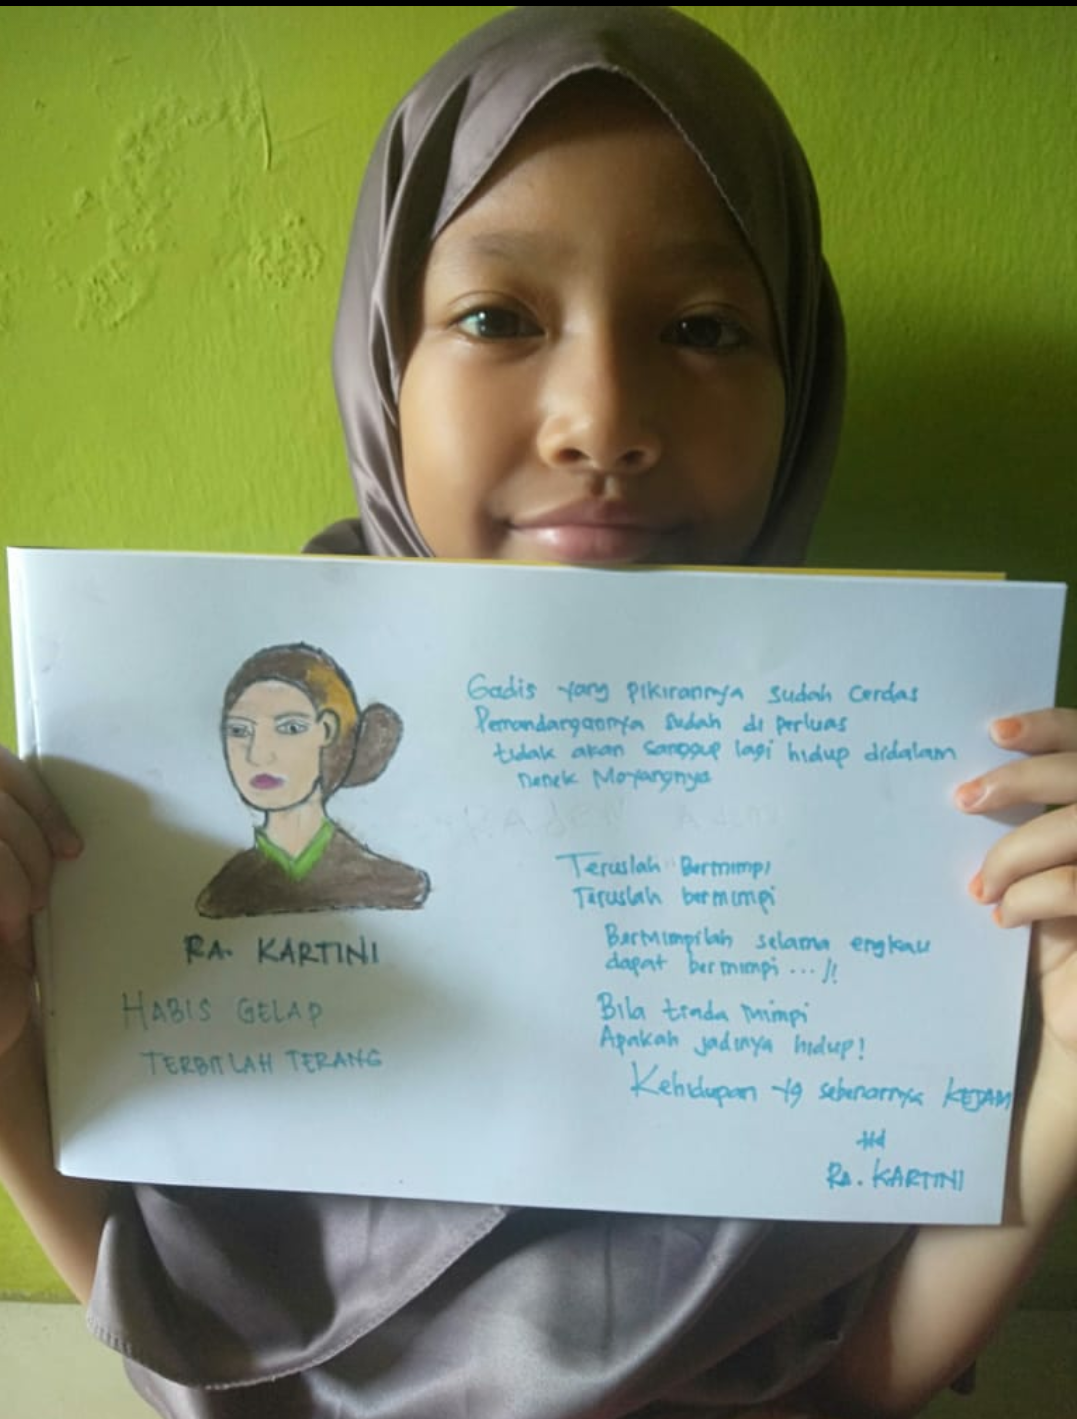 RA. KARTINI
HABIS GELAP
TERBITLAH TERANG
Gadis yang pikirannya sudah cerdas
Pemandangannya sudah di perluas
tidak akan sanggup lagi hidup didalam
nenek Moyangnya
Teruslah Bermimpi
Teruslah bermimpi
Bermimpilah selama engkau
dapat bermimpi ... !!
Bila tiada mimpi
Apakah jadinya hidup!
Kehidupan yg sebenarnya KEJAM
ttd
RA. KARTINI